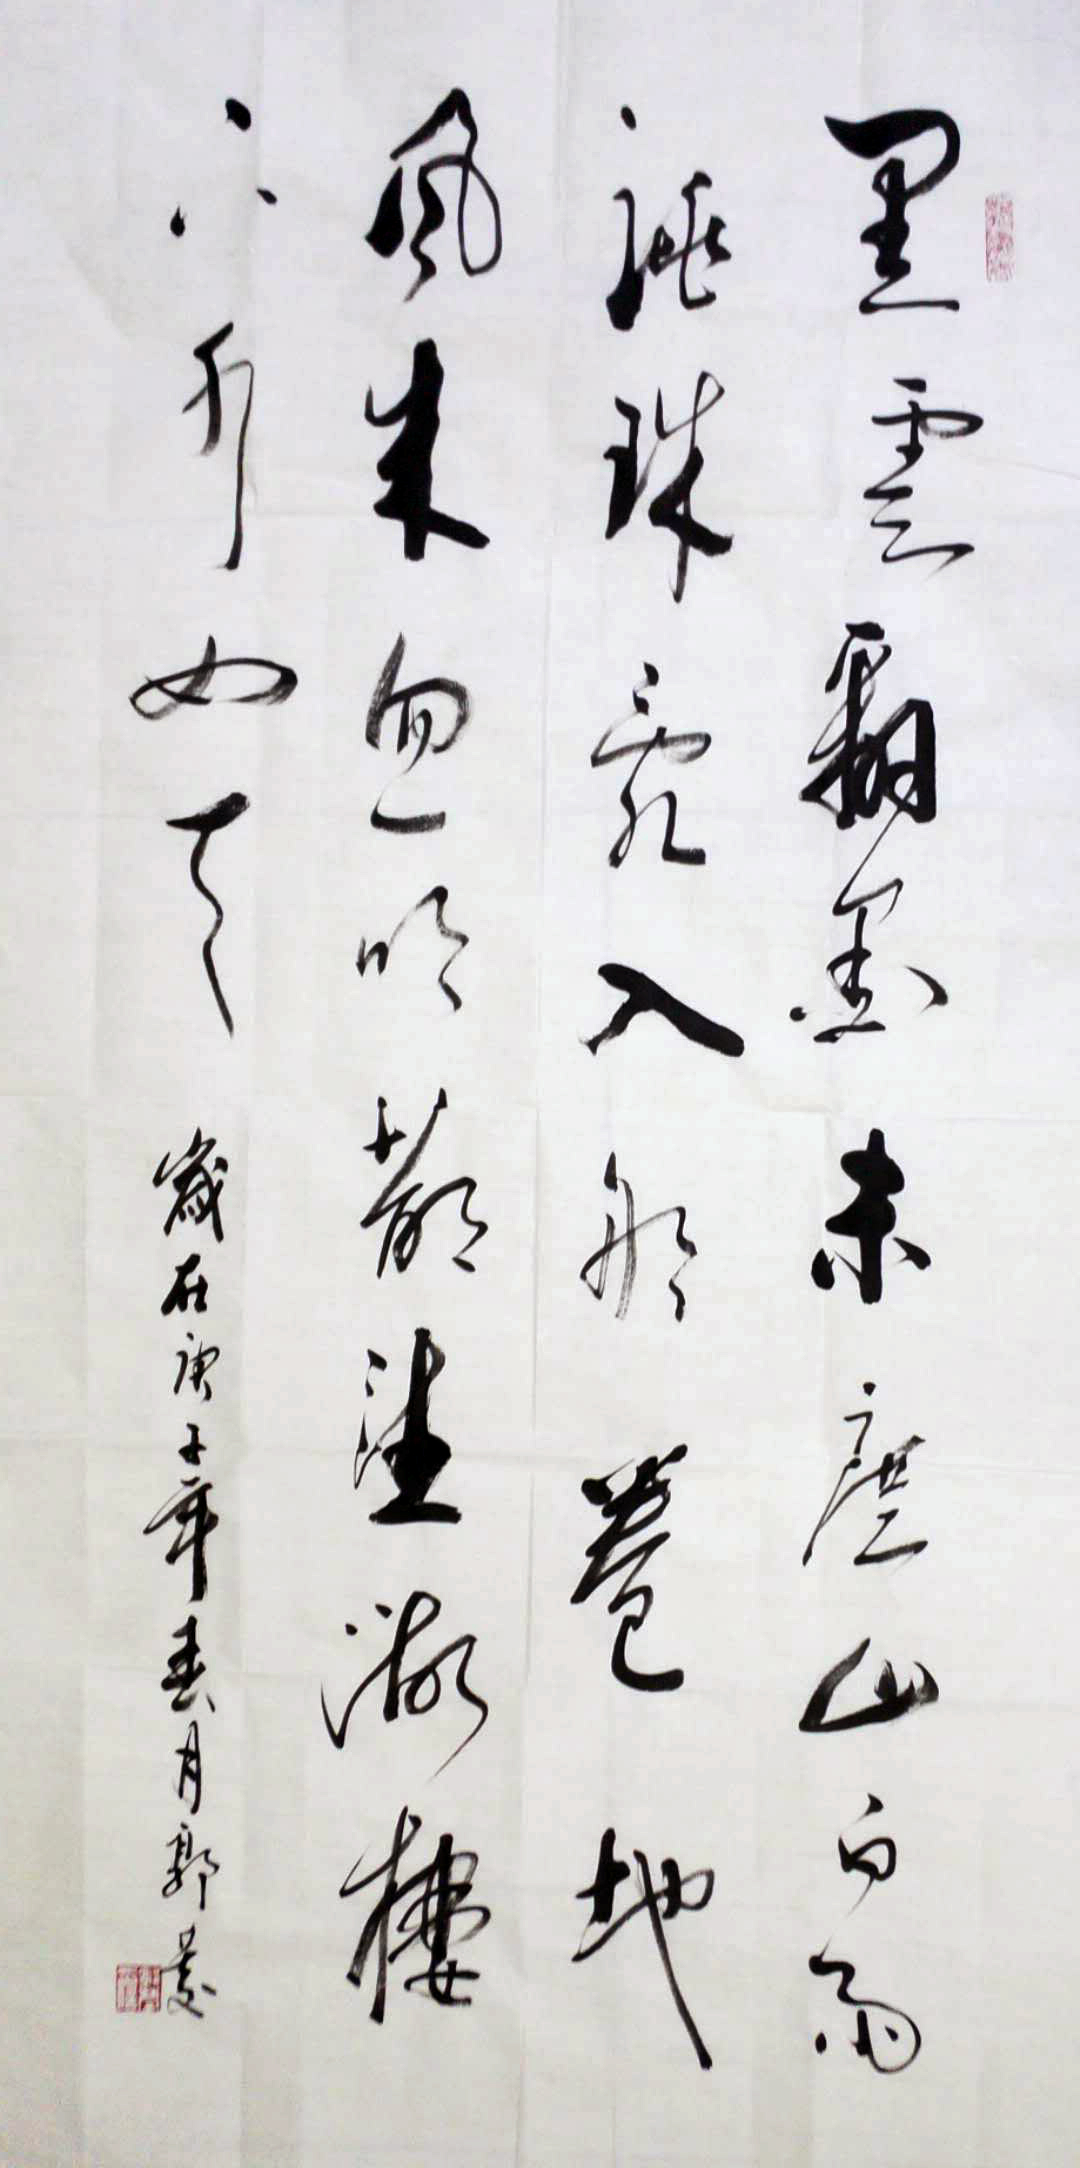 黑雲翻墨未遮山白雨
跳珠亂入船卷地
風来忽吹散望湖樓
下水如天 歲在庚子年春月郭